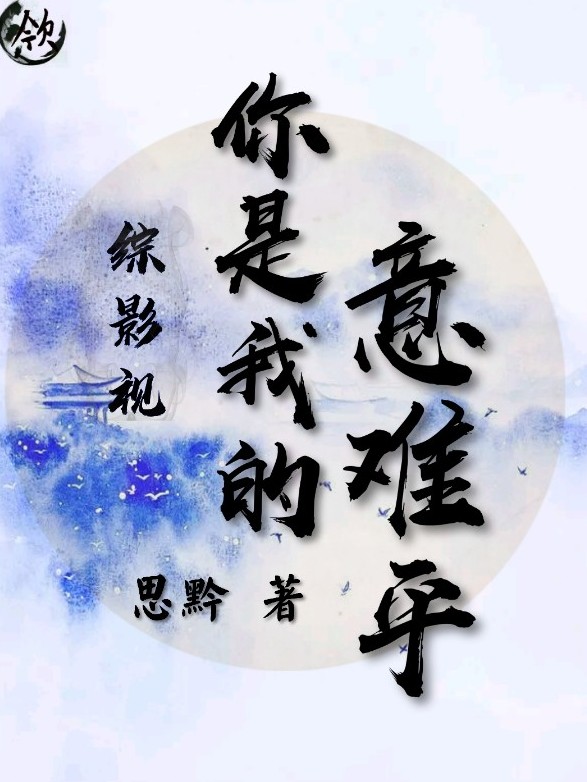 综影视
你是我的
意难平
思黔 著